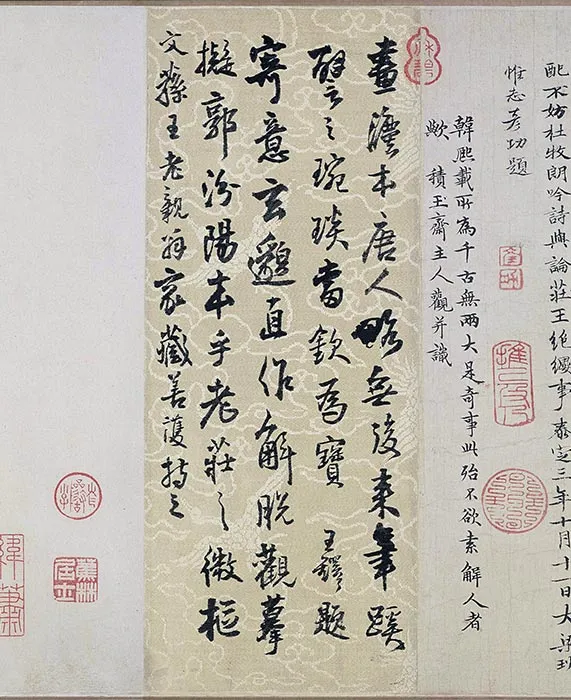 配不妨杜牧朗吟詩與論莊王絕纓事泰定三年十月十一日大梁班
惟志彥功題
韓熙載所為千古無兩大是奇事此殆不欲索解人者
歟 積玉齋主人觀并識
畫灋本唐人略無後來筆蹊
譬之琬琰當欽為寶 王鐸題
寄意玄邈直作解脫觀摹
擬郭汾陽本乎老莊之微樞
文蓀王老親翁家藏善護持之
蕉林居士
緯蕭